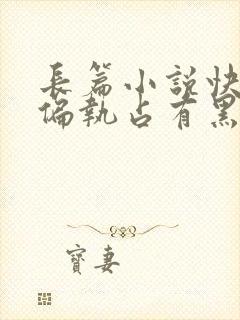 長篇小説快
偏執占有黑
寶妻